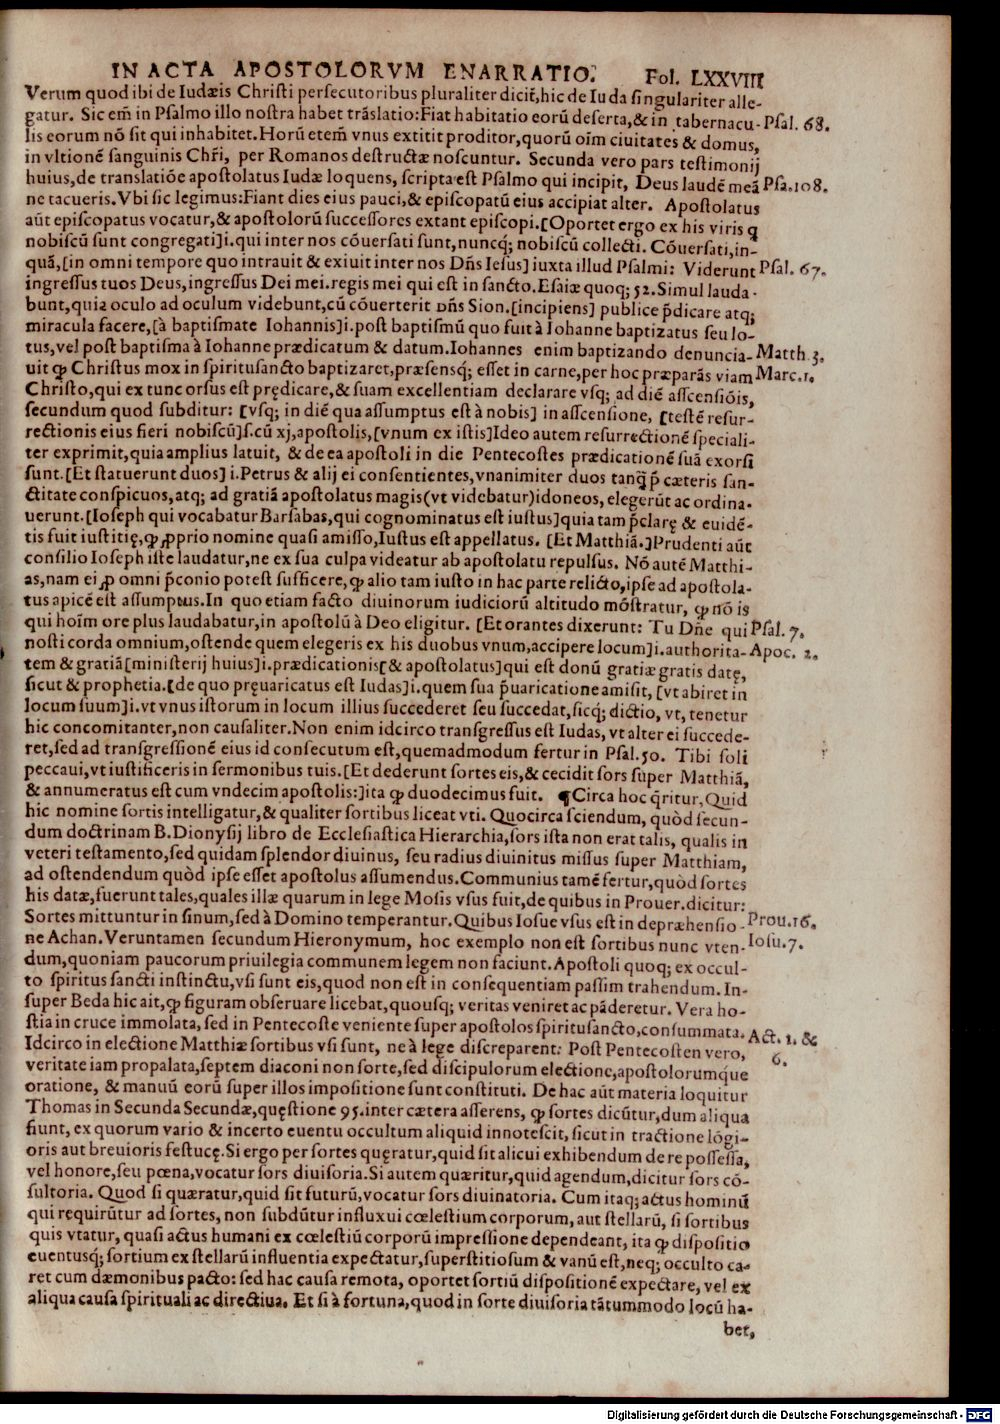 IN ACTA APOSTOLORVM ENARRATIO. Fol. LXXVIII
Verum quod ibi de Iudæis Christi persecutoribus pluraliter dicit, hic de Iuda singulariter alle-
gatur. Sic em̄ in Psalmo illo nostra habet trāslatio: Fiat habitatio eorū deserta, & in tabernacu- Psal. 68.
lis eorum nō sit qui inhabitet. Horū etem̄ vnus extitit proditor, quorū oīm ciuitates & domus,
in vltionē sanguinis Chr̄i, per Romanos destructæ noscuntur. Secunda vero pars testimonij
huius, de translatiōe apostolatus Iudæ loquens, scripta est Psalmo qui incipit, Deus laudē meā Psa. 108.
ne tacueris. Vbi sic legimus: Fiant dies eius pauci, & episcopatū eius accipiat alter. Apostolatus
aūt episcopatus vocatur, & apostolorū successores extant episcopi. [Oportet ergo ex his viris q
nobiscū sunt congregati] i. qui inter nos cōuersati sunt, nuncq; nobiscū collecti. Cōuersati, in-
quā, [in omni tempore quo intrauit & exiuit inter nos Dn̄s Iesus] iuxta illud Psalmi: Viderunt Psal. 67.
ingressus tuos Deus, ingressus Dei mei. regis mei qui est in sancto. Esaiæ quoq; 52. Simul lauda-
bunt, quia oculo ad oculum videbunt, cū cōuerterit Dn̄s Sion. [incipiens] publice p̄dicare atq;
miracula facere, [à baptismate Iohannis] i. post baptismū quo fuit à Iohanne baptizatus seu lo-
tus, vel post baptisma à Iohanne prædicatum & datum. Iohannes enim baptizando denuncia- Matth. 3.
uit ꝙ Christus mox in spiritusancto baptizaret, præsensq; esset in carne, per hoc præparās viam Marc. 1.
Christo, qui ex tunc orsus est prędicare, & suam excellentiam declarare vsq; ad diē assensiōis,
secundum quod subditur: [vsq; in diē qua assumptus est à nobis] in ascensione, [testē resur-
rectionis eius fieri nobiscū] s. cū xj, apostolis, [vnum ex istis] Ideo autem resurrectionē speciali-
ter exprimit, quia amplius latuit, & de ea apostoli in die Pentecostes prædicationē suā exorsi
sunt. [Et statuerunt duos] i. Petrus & alij ei consentientes, vnanimiter duos tanq̄ p̄ cæteris san-
ctitate conspicuos, atq; ad gratiā apostolatus magis (vt videbatur) idoneos, elegerūt ac ordina-
uerunt. [Ioseph qui vocabatur Barsabas, qui cognominatus est iustus] quia tam p̄clarę & euidē-
tis fuit iustitię, ꝙ ꝓprio nomine quasi amisso, Iustus est appellatus. [Et Matthiā.] Prudenti aūt
consilio Ioseph iste laudatur, ne ex sua culpa videatur ab apostolatu repulsus. Nō autē Matthi-
as, nam ei ꝓ omni p̄conio potest sufficere, ꝙ alio tam iusto in hac parte relicto, ipse ad apostola-
tus apicē est assumptus. In quo etiam facto diuinorum iudiciorū altitudo mōstratur, ꝙ nō is
qui hoīm ore plus laudabatur, in apostolū à Deo eligitur. [Et orantes dixerunt: Tu Dn̄e qui Psal. 7.
nosti corda omnium, ostende quem elegeris ex his duobus vnum, accipere locum] i. authorita- Apoc. 2.
tem & gratiā [ministerij huius] i. prædicationis [& apostolatus] qui est donū gratiæ gratis datę,
sicut & prophetia. [de quo pręuaricatus est Iudas] i. quem sua p̄uaricatione amisit, [vt abiret in
locum suum] i. vt vnus istorum in locum illius succederet seu succedat, sicq; dictio, vt, tenetur
hic concomitanter, non causaliter. Non enim idcirco transgressus est Iudas, vt alter ei succede-
ret, sed ad transgressionē eius id consecutum est, quemadmodum fertur in Psal. 50. Tibi soli
peccaui, vt iustificeris in sermonibus tuis. [Et dederunt sortes eis, & cecidit sors super Matthiā,
& annumeratus est cum vndecim apostolis:] ita ꝙ duodecimus fuit. ¶ Circa hoc q̄ritur, Quid
hic nomine sortis intelligatur, & qualiter sortibus liceat vti. Quocirca sciendum, quòd secun-
dum doctrinam B. Dionysij libro de Ecclesiastica Hierarchia, sors ista non erat talis, qualis in
veteri testamento, sed quidam splendor diuinus, seu radius diuinitus missus super Matthiam,
ad ostendendum quòd ipse esset apostolus assumendus. Communius tamē fertur, quòd sortes
his datæ, fuerunt tales, quales illæ quarum in lege Mosis vsus fuit, de quibus in Prouer. dicitur:
Sortes mittuntur in sinum, sed à Domino temperantur. Quibus Iosue vsus est in depræhensio- Prou. 16.
ne Achan. Veruntamen secundum Hieronymum, hoc exemplo non est sortibus nunc vten- Iosu. 7.
dum, quoniam paucorum priuilegia communem legem non faciunt. Apostoli quoq; ex occul-
to spiritus sancti instinctu, vsi sunt eis, quod non est in consequentiam passim trahendum. In-
super Beda hic ait, ꝙ figuram obseruare licebat, quousq; veritas veniret ac pāderetur. Vera ho-
stia in cruce immolata, sed in Pentecoste veniente super apostolos spiritusancto, consummata. Act. 1. &
Idcirco in electione Matthiæ sortibus vsi sunt, ne à lege discreparent: Post Pentecosten vero, 6.
veritate iam propalata, septem diaconi non sorte, sed discipulorum electione, apostolorumque
oratione, & manuū eorū super illos impositione sunt constituti. De hac aūt materia loquitur
Thomas in Secunda Secundæ, quęstione 95. inter cætera asserens, ꝙ sortes dicūtur, dum aliqua
fiunt, ex quorum vario & incerto euentu occultum aliquid innotescit, sicut in tractione lōgi-
oris aut breuioris festucę. Si ergo per sortes quęratur, quid sit alicui exhibendum de re possessa,
vel honore, seu pœna, vocatur sors diuisoria. Si autem quæritur, quid agendum, dicitur sors cō-
sultoria. Quod si quæratur, quid sit futurū, vocatur sors diuinatoria. Cum itaq; actus hominū
qui requirūtur ad sortes, non subdūtur influxui cœlestium corporum, aut stellarū, si sortibus
quis vtatur, quasi actus humani ex cœlestiū corporū impressione dependeant, ita ꝙ dispositio
euentusq; sortium ex stellarū influentia expectatur, superstitiosum & vanū est, neq; occulto ca-
ret cum dæmonibus pacto: sed hac causa remota, oportet sortiū dispositionē expectare, vel ex
aliqua causa spirituali ac directiua. Et si à fortuna, quod in sorte diuisoria tātummodo locū ha-
bet,
Digitalisierung gefördert durch die Deutsche Forschungsgemeinschaft - DFG